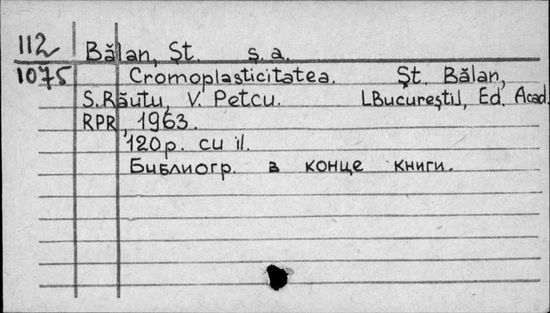 112
Bălan, Șt. ș.a.
1075
Cromoplasticitatea. Șt. Bălan,
S. Răutu, V. Petcu. [București], Ed. Acad.
RPR, 1963.
120 p. cu il.
Библиогр. в конце книги.